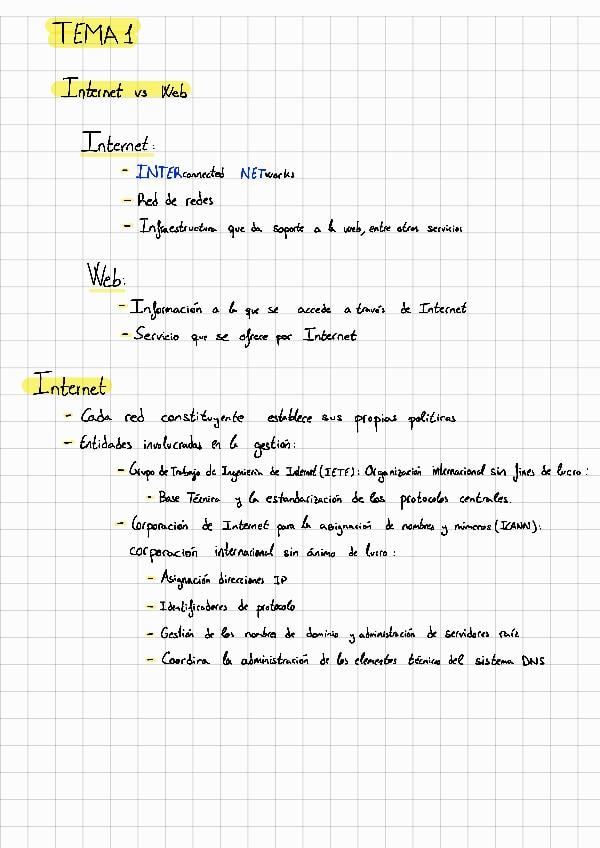 TEMA 1
Internet vs Web
Internet:
- INTERconnected NETworks
- Red de redes
- Infraestructura que da soporte a la web, entre otros servicios
Web:
- Información a la que se accede a través de Internet
- Servicio que se ofrece por Internet
Internet
- Cada red constituyente establece sus propias políticas
- Entidades involucradas en la gestión:
- Grupo de Trabajo de Ingeniería de Internet (IETF): Organización internacional sin fines de lucro:
- Base Técnica y la estandarización de los protocolos centrales.
- Corporación de Internet para la asignación de nombres y números (ICANN):
corporación internacional sin ánimo de lucro:
- Asignación direcciones IP
- Identificadores de protocolo
- Gestión de los nombres de dominio y administración de servidores raíz
- Coordina la administración de los elementos técnicos del sistema DNS